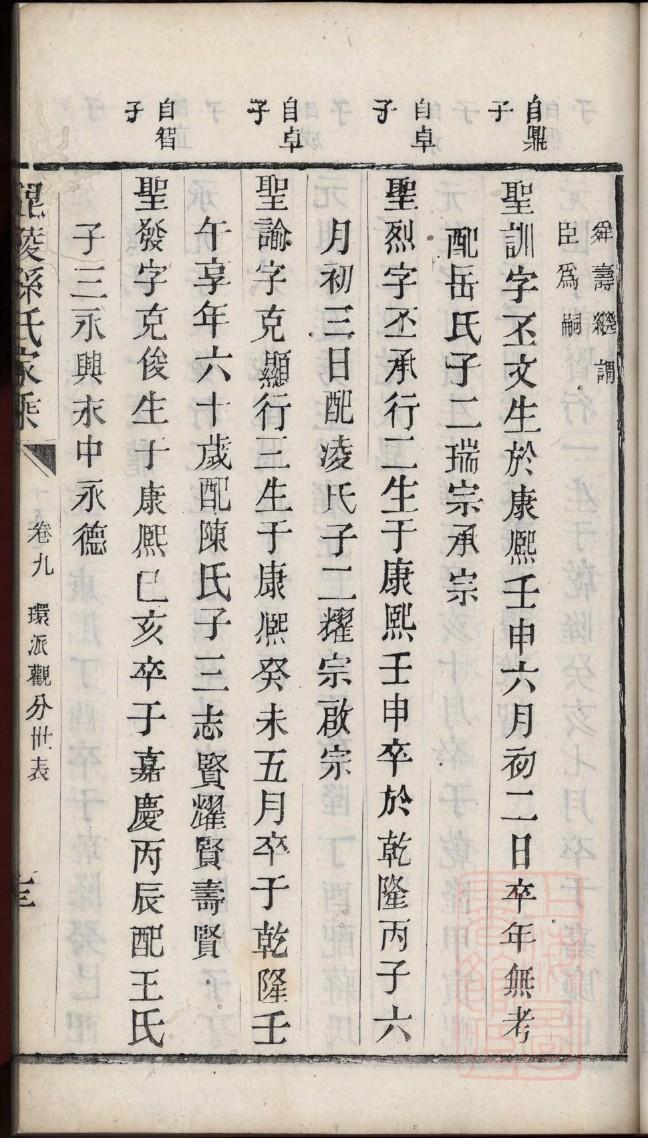 舜壽繼謂
臣爲嗣
自鼎
子
聖訓字丕文生於康熈壬申六月初二日卒年無考
配岳氏子二瑞宗承宗
自卓
子
聖烈字丕承行二生于康熙壬申卒於乾隆丙子六
月初三日配凌氏子二耀宗啟宗
自卓
子
聖諭字克顯行三生于康熈癸未五月卒于乾隆壬
午享年六十歲配陳氏子三志賢耀賢壽賢
自智
子
聖發字克俊生于康熈己亥卒于嘉慶丙辰配王氏
子三永興永中永德
毘陵孫氏家乘
卷九
環派觀分世表